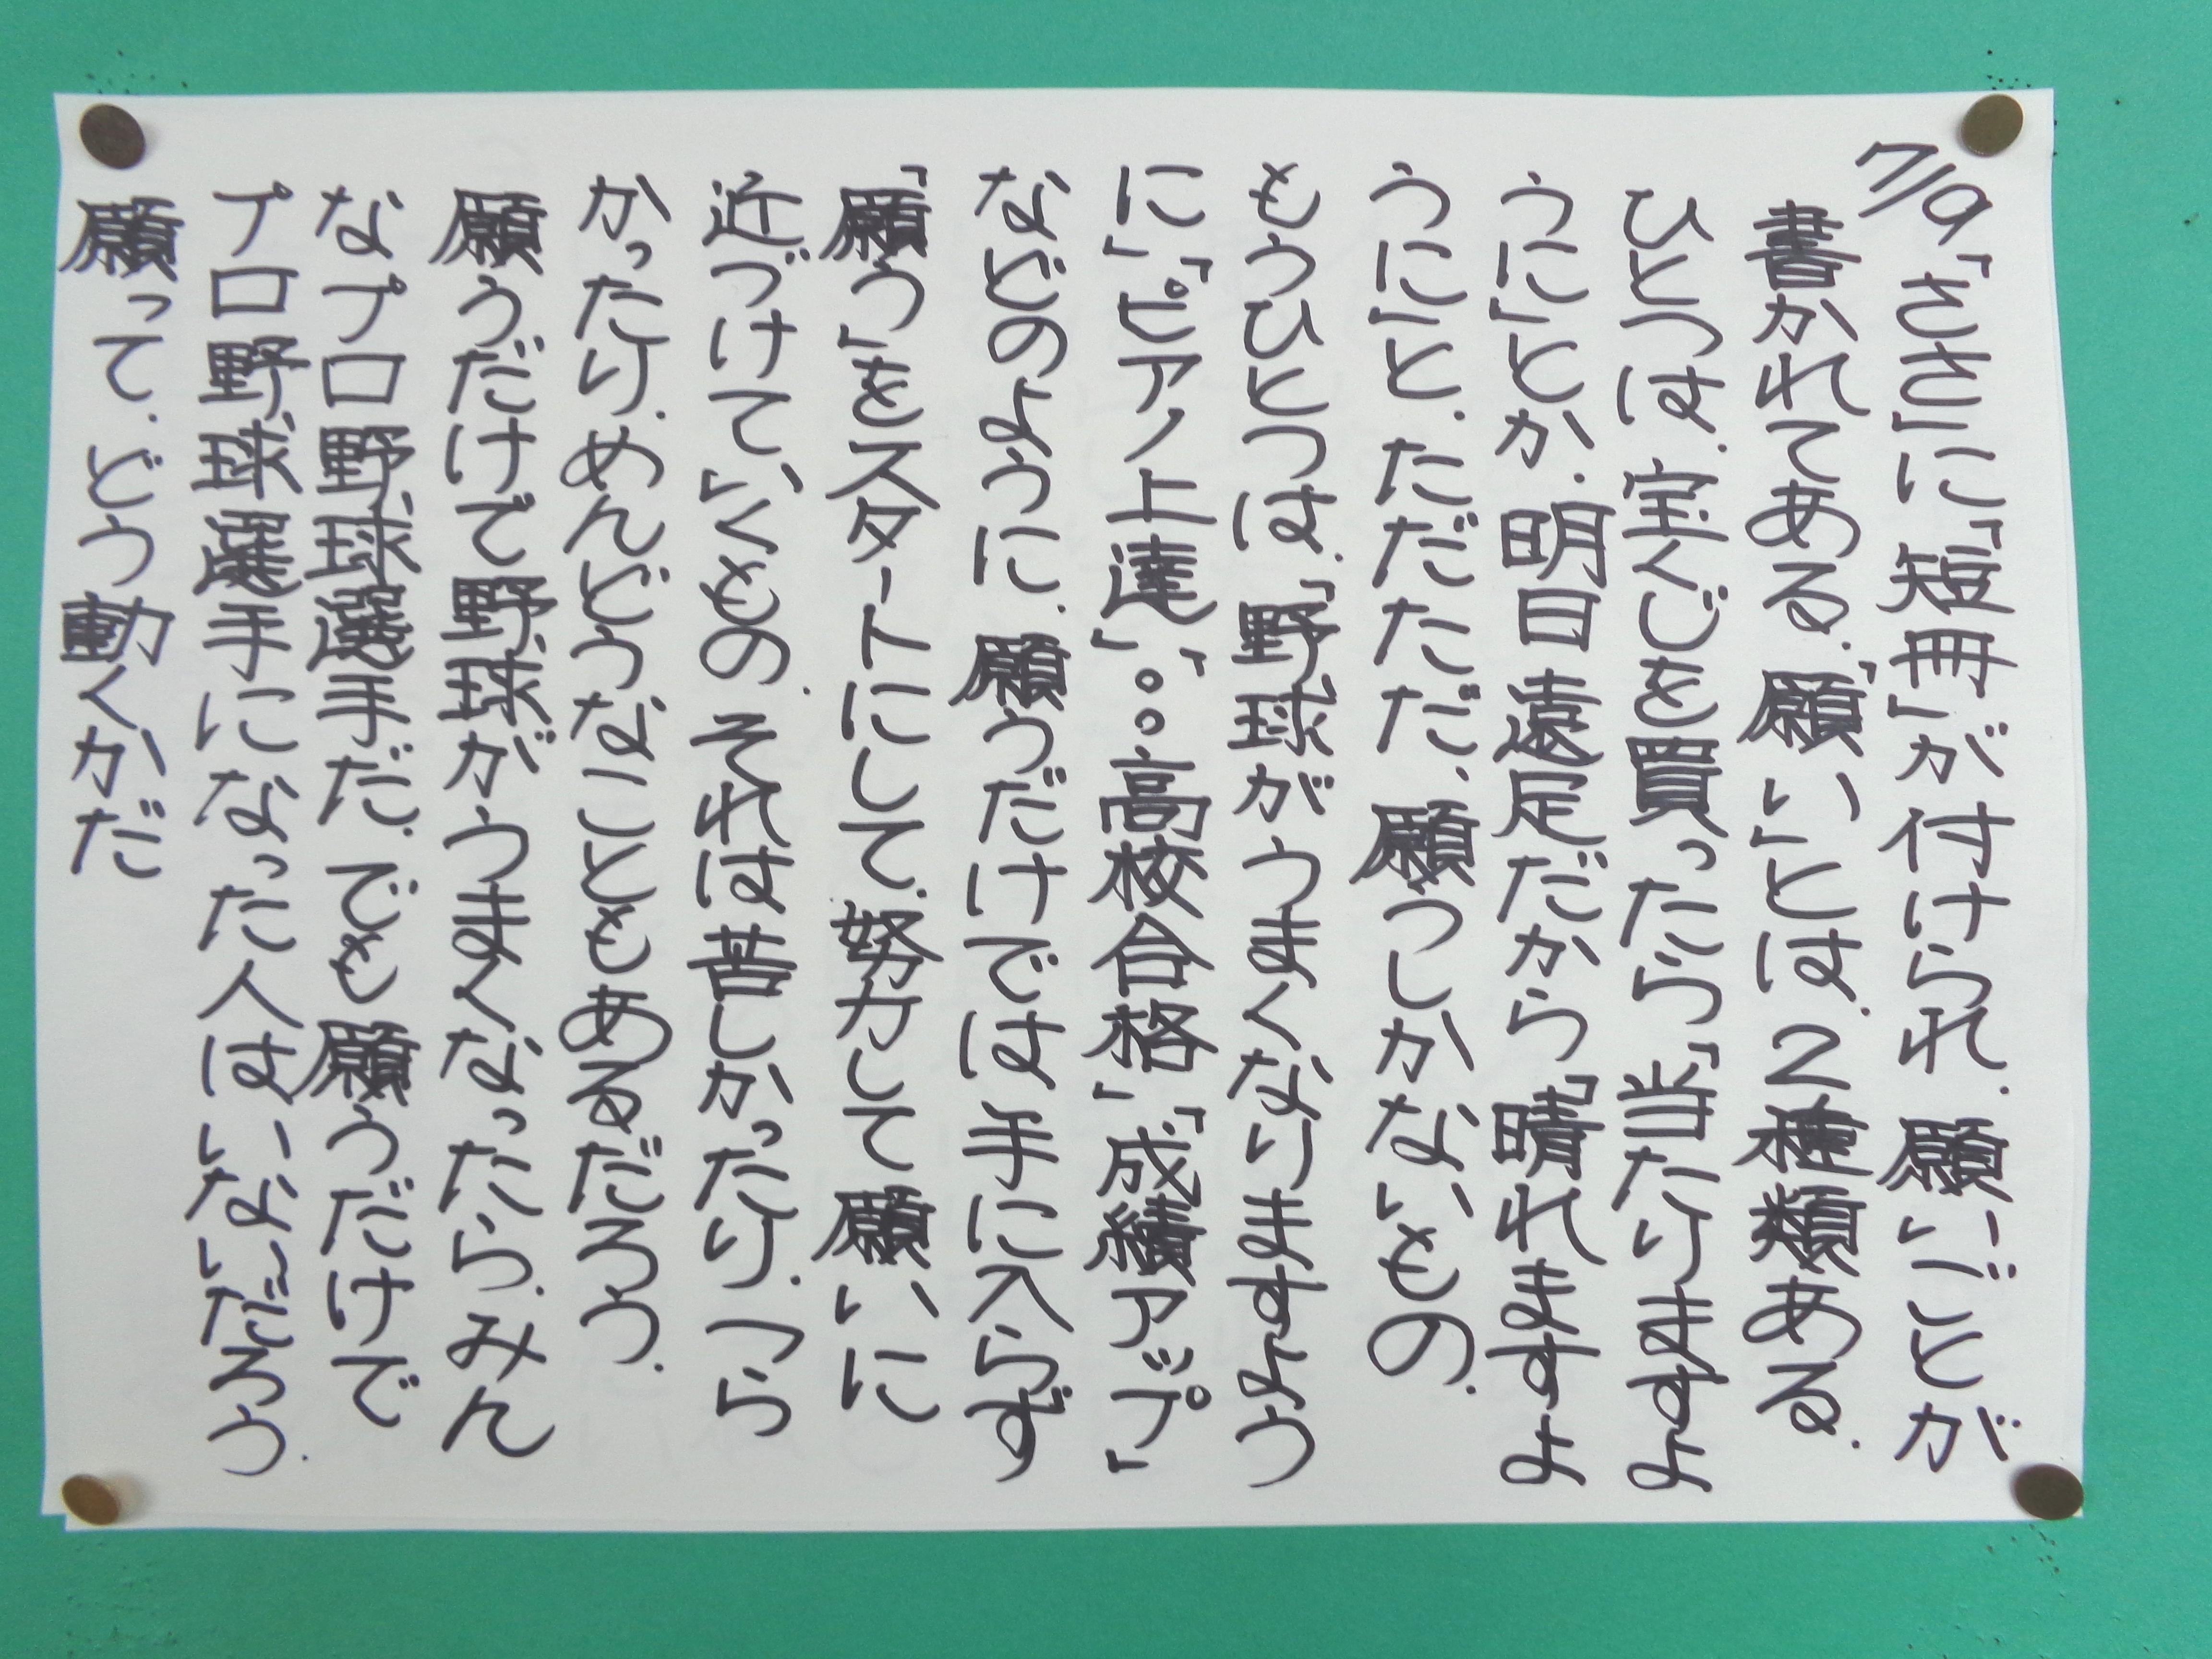 7/9「ささ」に「短冊」が付けられ、願いごとが
書かれてある。「願い」とは、2種類ある。
ひとつは、宝くじを買ったら「当たりますよ
うに」とか、明日遠足だから「晴れますよ
うに」と、ただただ、願うしかないもの。
もうひとつは、「野球がうまくなりますよう
に」「ピアノ上達」「○○高校合格」「成績アップ」
などのように、願うだけでは手に入らず
「願う」をスタートにして、努力して願いに
近づけていくもの。それは苦しかったり、つら
かったり、めんどうなこともあるだろう。
願うだけで野球がうまくなったら、みん
なプロ野球選手だ。でも願うだけで
プロ野球選手になった人は、いないだろう。
願って、どう動くかだ